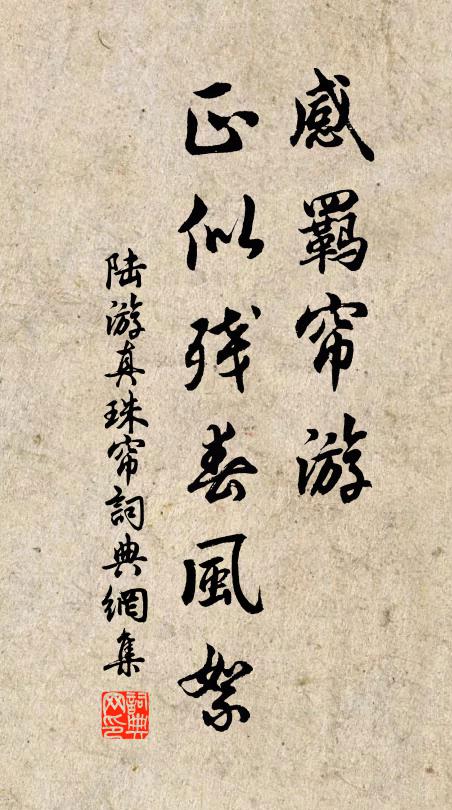 感羈帘游
正似残春風絮
陆游真珠帘詞典網集
詞典网印